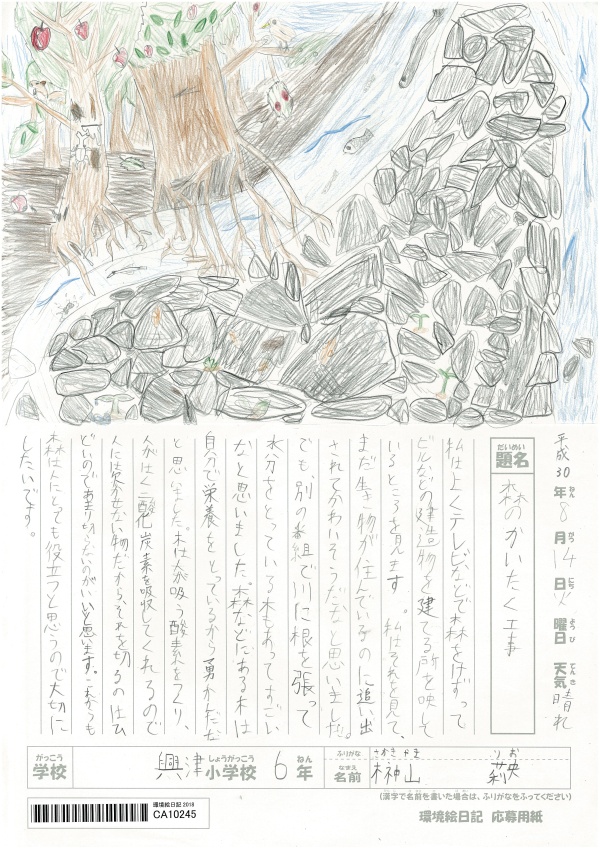 平成30年8月14日火曜日 天気晴れ
題名 森のかいたく工事
私はよくテレビなどで森をけずって
ビルなどの建造物を建てる所を映して
いるところを見ます。私はそれを見て、
まだ生き物が住んでいるのに追い出
されてかわいそうだなと思いました。
でも、別の番組で川に根を張って
水分をとっている木もあってすごい
なと思いました。森などにある木は
自分で栄養をとっているから勇かんだな
と思いました。木は人が吸う酸素をつくり、
人がはく二酸化炭素を吸収してくれるので
人に欠かせない物だからそれを切るのはひ
どいのであまり切らないのがいいと思います。これからも
森は人にとっても役立つと思うので大切に
したいです。
学校 興津小学校 6年
ふりがな さかきやま りお
名前 榊山 莉央
(漢字で名前を書いた場合は、ふりがなをふってください)
環境絵日記 2018
CA10245
環境絵日記 応募用紙